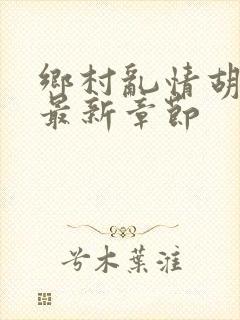 鄉村亂情胡
最新章節
兮木葉漼